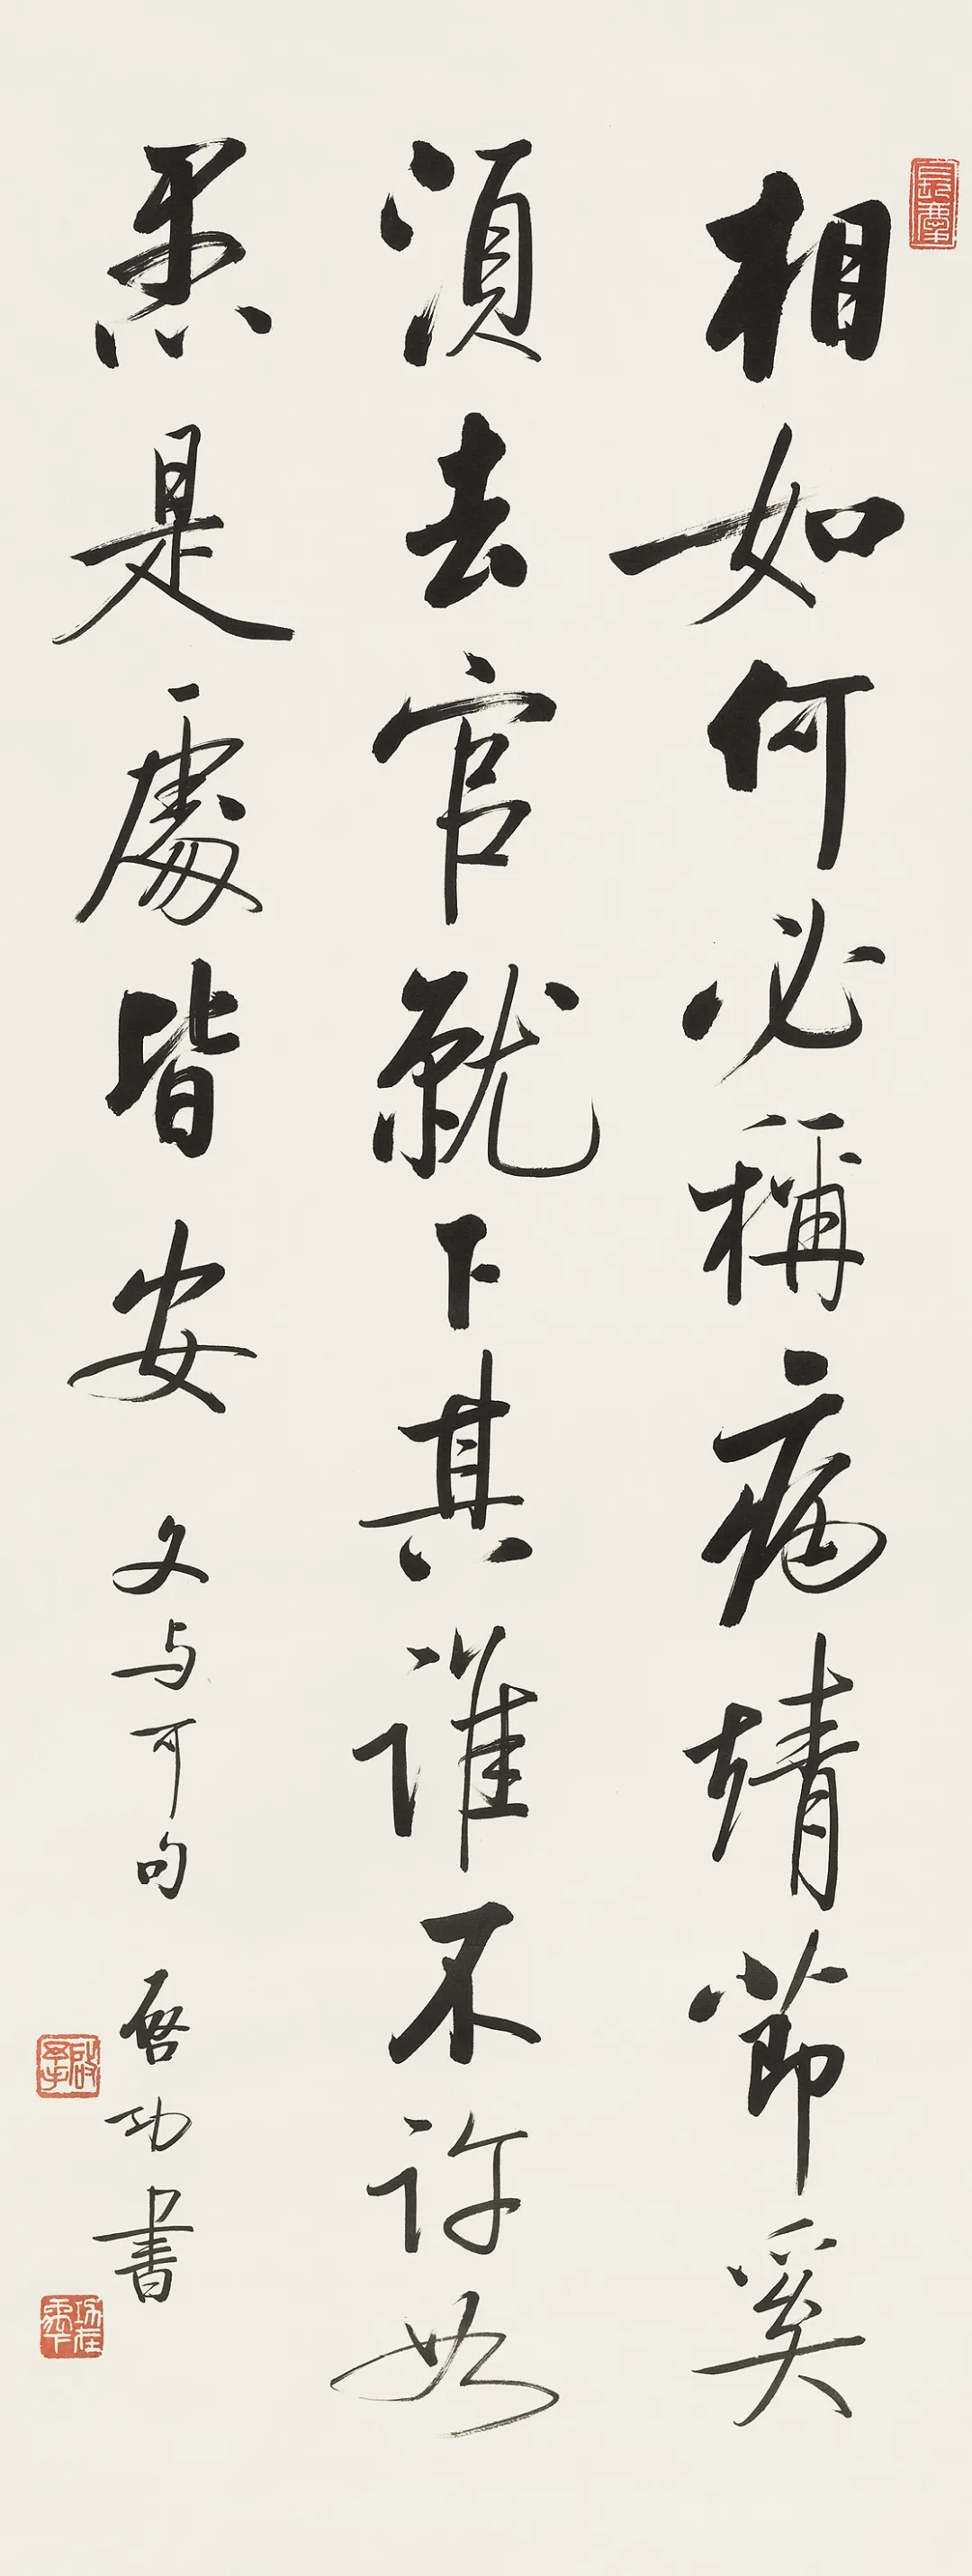 相如何必稱病靖節奚
須去官就下其誰不許如
愚是處皆安
文与可句
啓功書
啓功